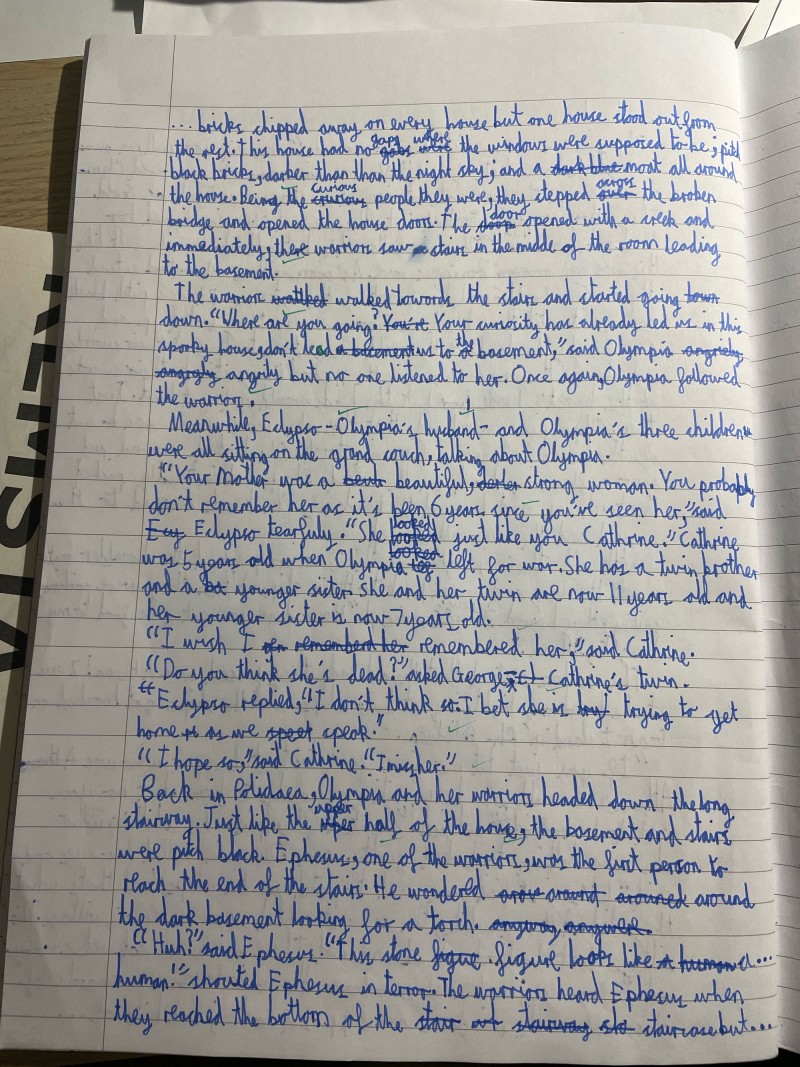 ... bricks chipped away on every house but one house stood out from
the rest. This house had no gaps where gabs were the windows were supposed to be; pitch
black bricks, darker than than the night sky; and a dark blue moat all around
the house. Being the curious cruious people they were, they stepped across over the broken
bridge and opened the house door. The door doop opened with a creek and
immediately, there warriors saw a stairs in the middle of the room leading
to the basement.
The warriors wattked walked towards the stairs and started going town
down. "Where are you going? You're Your curiosity has already led us in this
spooky house, don't lead a basement us to the basement," said Olympia angriely
angrgly angrily but no one listened to her. Once again, Olympia followed
the warriors.
Meanwhile, Eclypso - Olympia's husband - and Olympia's three children
were all sitting on the grand couch, talking about Olympia.
"Your Mother was a beautiful, strong woman. You probably
don't remember her as it's been 6 years since you've seen her," said
Ecy Eclypso tearfuly. "She looked just like you Cathrine." Cathrine
was 5 years old when Olympia left for war. She has a twin brother
and a younger sister. She and her twin are now 11 years old and
her younger sister is now 7 years old.
"I wish I rememberd her remembered her," said Cathrine.
"Do you think she's dead?" asked George, Cathrine's twin.
"Eclypso replied, "I don't think so. I bet she is tryi trying to get
home as we speet speak."
"I hope so," said Cathrine. "I miss her."
Back in Polidaea, Olympia and her warriors headed down the long
stairway. Just like the upper half of the house, the basement and stairs
were pitch black. Ephesus, one of the warriors, was the first person to
reach the end of the stairs. He wondered arou around arouned around
the dark basement looking for a torch. anyway, anywere.
"Huh?" said Ephesus. "This stone figue figure looks like a human a...
human!" shouted Ephesus in terror. The warriors heard Ephesus when
they reached the bottom of the stair wt stairway sta staircase but...
VISM